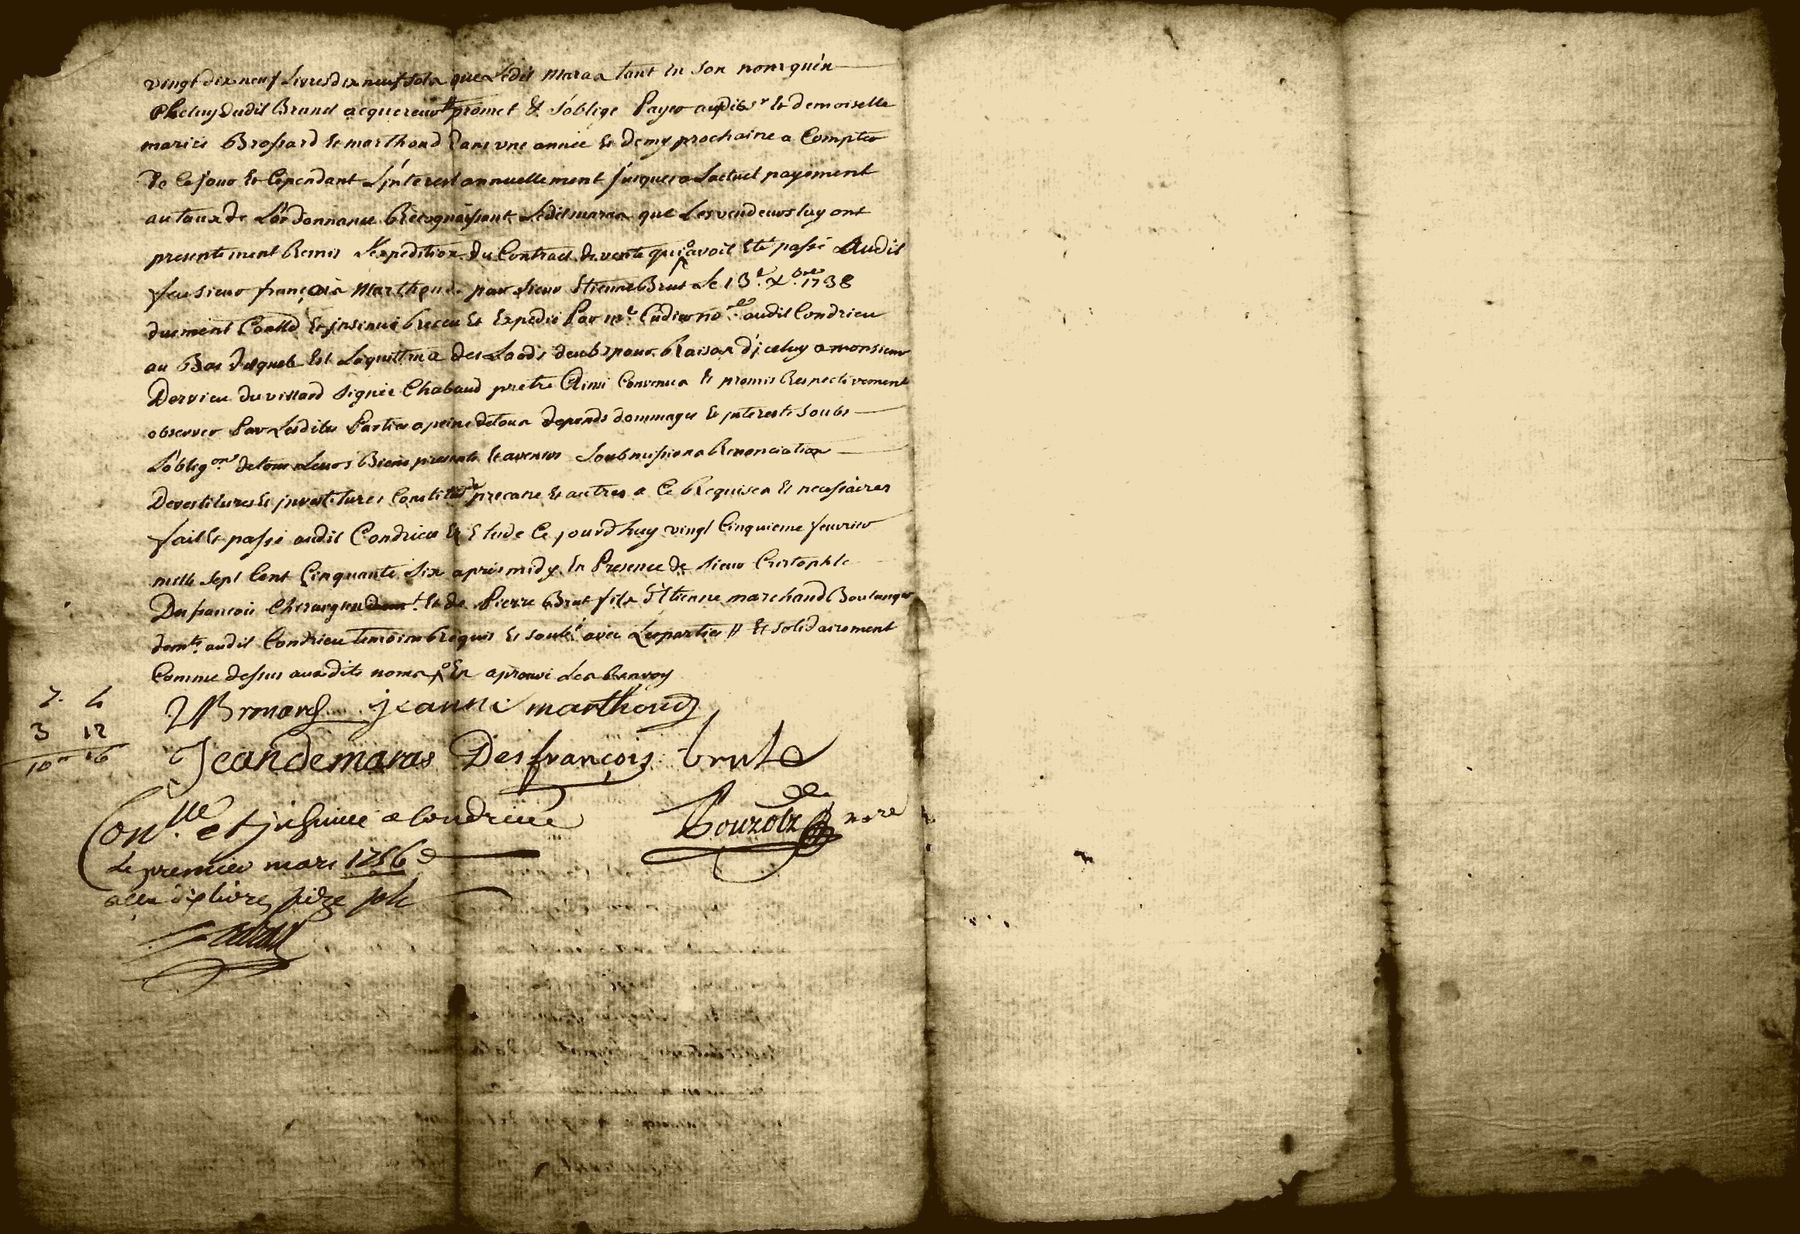 vingt dix neuf livres dix neuf sols que ledit maras tant en son nom qu'en
dudit Brunet acquereur promet & s'oblige payer audit sr & demoiselle
mariés Brossard & marthoud dans une année & demy prochaine a compter
de ce jour & cependant l'interest annuellement jusques a l'actuel payement
au taux de l'ordonnance Reconnaissant ledit maras que les vendeurs luy ont
presentement Remis l'expedition du Contract de vente qui avoit eté passé Audit
feu sieur françois Marthoud par sieur Etienne Brut le 13e xbre 1738
duement Conllé & insinué Receu & Expedié Par me Cadier nore audit Condrieu
au Bas duquel Est la quittance des Laods deubs pour Raison d'iceluy a monsieur
Dervieu du villard signée Chabaud pretre Ainsi Convenu & promis Respectivement
observer Par Lesdites Parties a peine de tous depends dommages & interests soubs
L'obligon de tous Leurs Biens presents & avenirs Soubmissions Renonciation
Devestitures & investitures Constiton precaire & autres a ce Requises & necessaires
fait & passé audit Condrieu Etude Ce jourd'huy vingt Cinquieme fevrier
mille sept Cent Cinquante Six apres midy En Presence de sieur Cristophle
Desfrançois Chirurgien & de Pierre Brut fils d'Etienne marchand Boulanger
demts audit Condrieu temoins Requis & soubé avec Les parties // & solidairement
Comme dessus auxdits noms En aprouvé les Renvoy
7. 4
3 12
10ll 16
Brossard jeanne marthoud
Jean de maras Desfrançois brut
Conllé et insinué a Condrieu
Bouzolz nore
Le premier mars 1756
dix livres seize sols